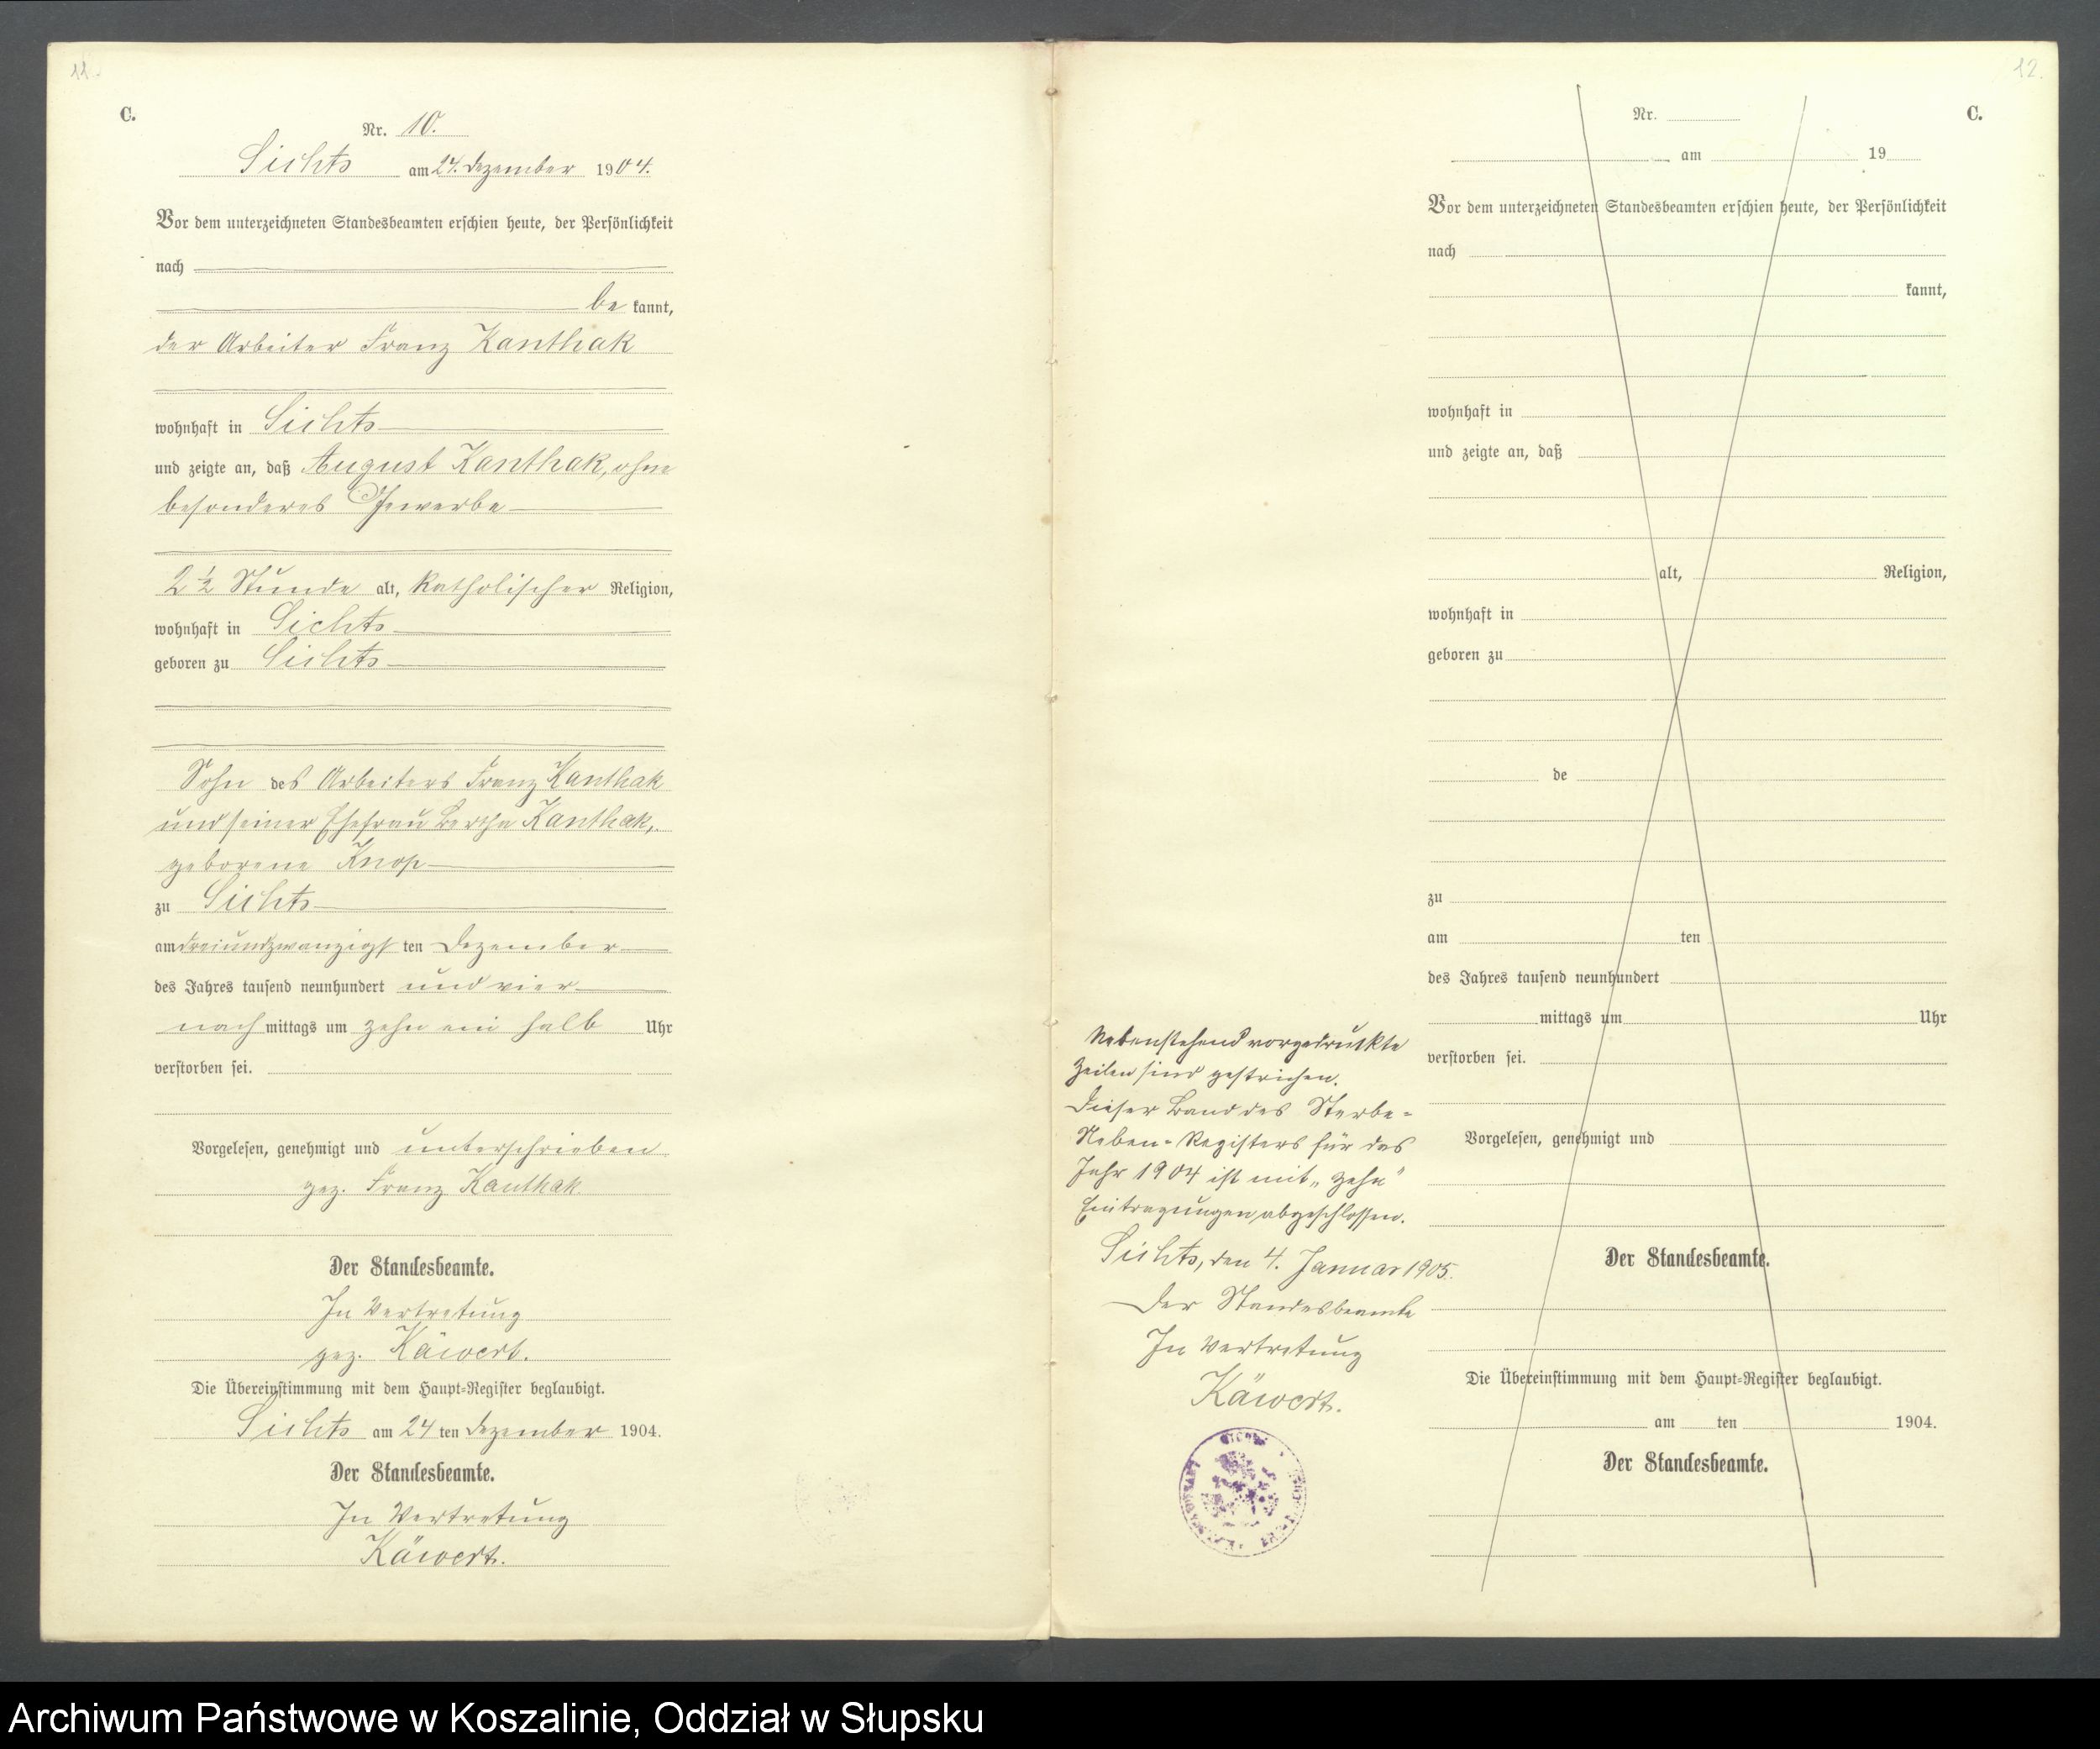 11.
C.
Nr. 10.
Sichts am 24. Dezember 1904.
Vor dem unterzeichneten Standesbeamten erschien heute, der Persönlichkeit
nach
be kannt,
der Arbeiter Franz Kanthak
wohnhaft in Sichts
und zeigte an, daß August Kanthak, ohne
besonderes Gewerbe
2 1/2 Stunde alt, katholischer Religion,
wohnhaft in Sichts
geboren zu Sichts
Sohn des Arbeiters Franz Kanthak
und seiner Ehefrau Bertha Kanthak,
geborene Knop
zu Sichts
am dreiundzwanzigsten Dezember
des Jahres tausend neunhundert und vier
nach mittags um zehn ein halb Uhr
verstorben sei.
Vorgelesen, genehmigt und unterschrieben
gez. Franz Kanthak.
Der Standesbeamte.
In Vertretung
gez. Käwert.
Die Übereinstimmung mit dem Haupt-Register beglaubigt.
Sichts am 24 ten Dezember 1904.
Der Standesbeamte.
In Vertretung
Käwert.
12.
C.
Nr.
am 19
Vor dem unterzeichneten Standesbeamten erschien heute, der Persönlichkeit
nach
kannt,
wohnhaft in
und zeigte an, daß
alt, Religion,
wohnhaft in
geboren zu
de
zu
am ten
des Jahres tausend neunhundert
mittags um Uhr
verstorben sei.
Vorgelesen, genehmigt und
Der Standesbeamte.
Die Übereinstimmung mit dem Haupt-Register beglaubigt.
am ten 1904.
Der Standesbeamte.
Nebenstehend vorgedruckte
Zeilen sind gestrichen.
Dieser Band des Sterbe-
Neben-Registers für das
Jahr 1904 ist mit „zehn"
Eintragungen abgeschlossen.
Sichts, den 4. Januar 1905.
Der Standesbeamte
In Vertretung
Käwert.
Archiwum Państwowe w Koszalinie, Oddział w Słupsku